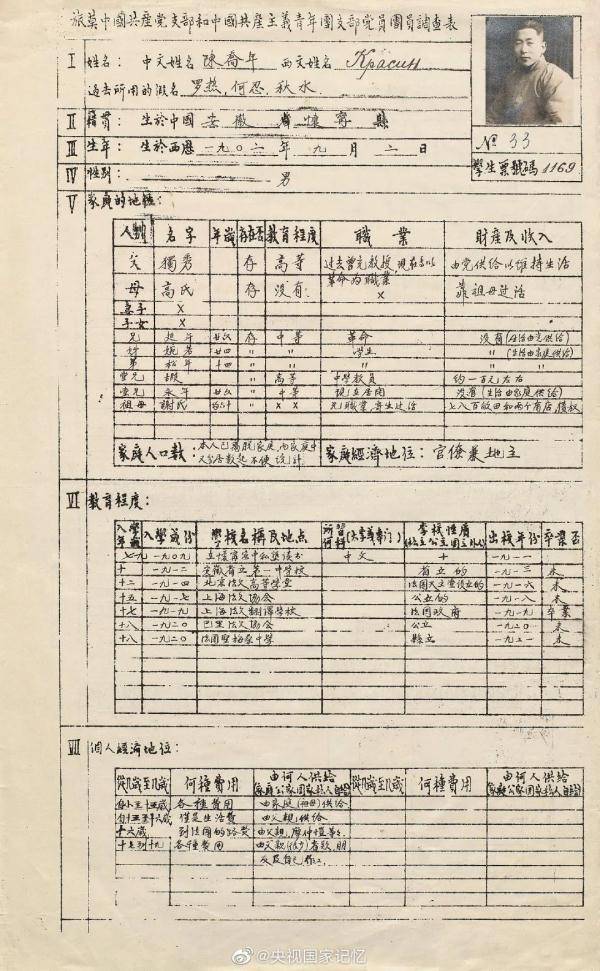 旅莫中國共産党支部和中國共産主義青年團支部党員團員調查表
I 姓名： 中文姓名 陳喬年 西文姓名 Красин
過去所用的假名 罗热，何忍，秋水
II 籍貫： 生於中國 安徽 省 懷寧 縣
III 生年： 生於西歷 一九〇二 年 九 月 二 日
IV 性别： 男
№ 33
學生票號碼 1169
V 家庭的地位：
人别 名字 年歲 存在否 教育程度 職業 財産及收入
父 獨秀 存 高等 过去曾充教授，現在專以革命为職業 由党供给以維持生活
母 高氏 存 没有 × 靠祖母过活
妻子 ×
子女 ×
兄 延年 廿六 存 中等 革命 没有(生活由党供给)
妹 廿四 〃 〃 学生 〃 (生活由家庭供给)
弟 松年 十四 〃 〃 〃 〃
堂兄 遐 〃 高等 中學教員 約一百元左右
堂兄 永年 廿六 〃 中等 現在居闲 没有(生活由家庭供给)
祖母 謝氏 〃 × × 无職業，寄生过活 七八百畝田和两个商店，債权
家庭人口數： 本人已离脱家庭，而家庭中人口数起不便统計 家庭經濟地位： 官僚兼地主
VI 教育程度：
入學年歲 入學歲份 學校名稱及地点 所習何科(大学或專门) 學校性质 出校年份 卒業否
七九 一九〇九 在懷寧家中私塾读书 中文 + 一九一一
十 一九一二 安徽省立第一中学校 省立的 一九一三 未
十二 一九一四 北京法文高等学堂 法國天主堂設立的 一九一六 未
十五 一九一七 上海法文协会 公立的 一九一八 未
十七 一九一九 上海法文翻譯学校 法國政府 一九一九 卒業
十八 一九二〇 巴里法文协会 公立 一九二〇 未
十八 一九二〇 法國聖梅桑中学 縣立 一九二一 未
VII 個人經濟地位：
從几歲至几歲 何種費用 由何人供给 從几歲至几歲 何種費用 由何人供给
自小至十五歲 各種費用 由家庭(祖母)供给
自十五至十六歲 僅是生活費 由父親供给
十六歲 到法國的路費 由父親，
十七到十九 各種費用 由父親(很少)
@央视国家记忆